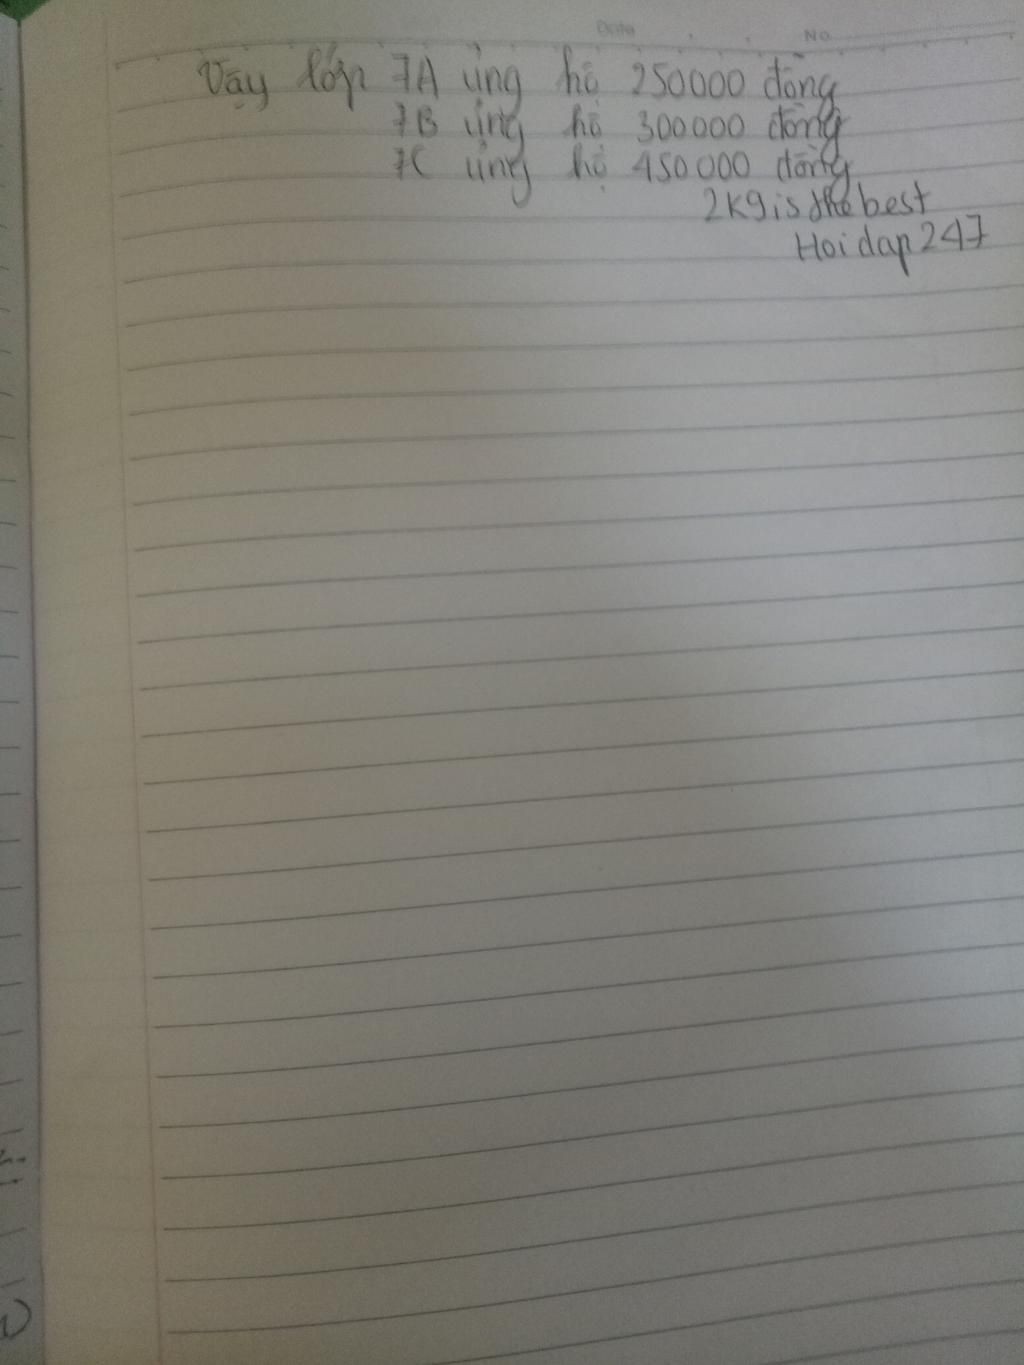 Date No
Vậy lớp 7A ủng hộ 250000 đồng
7B ủng hộ 300000 đồng
7C ủng hộ 450000 đồng
2K9 is the best
Hoidap247